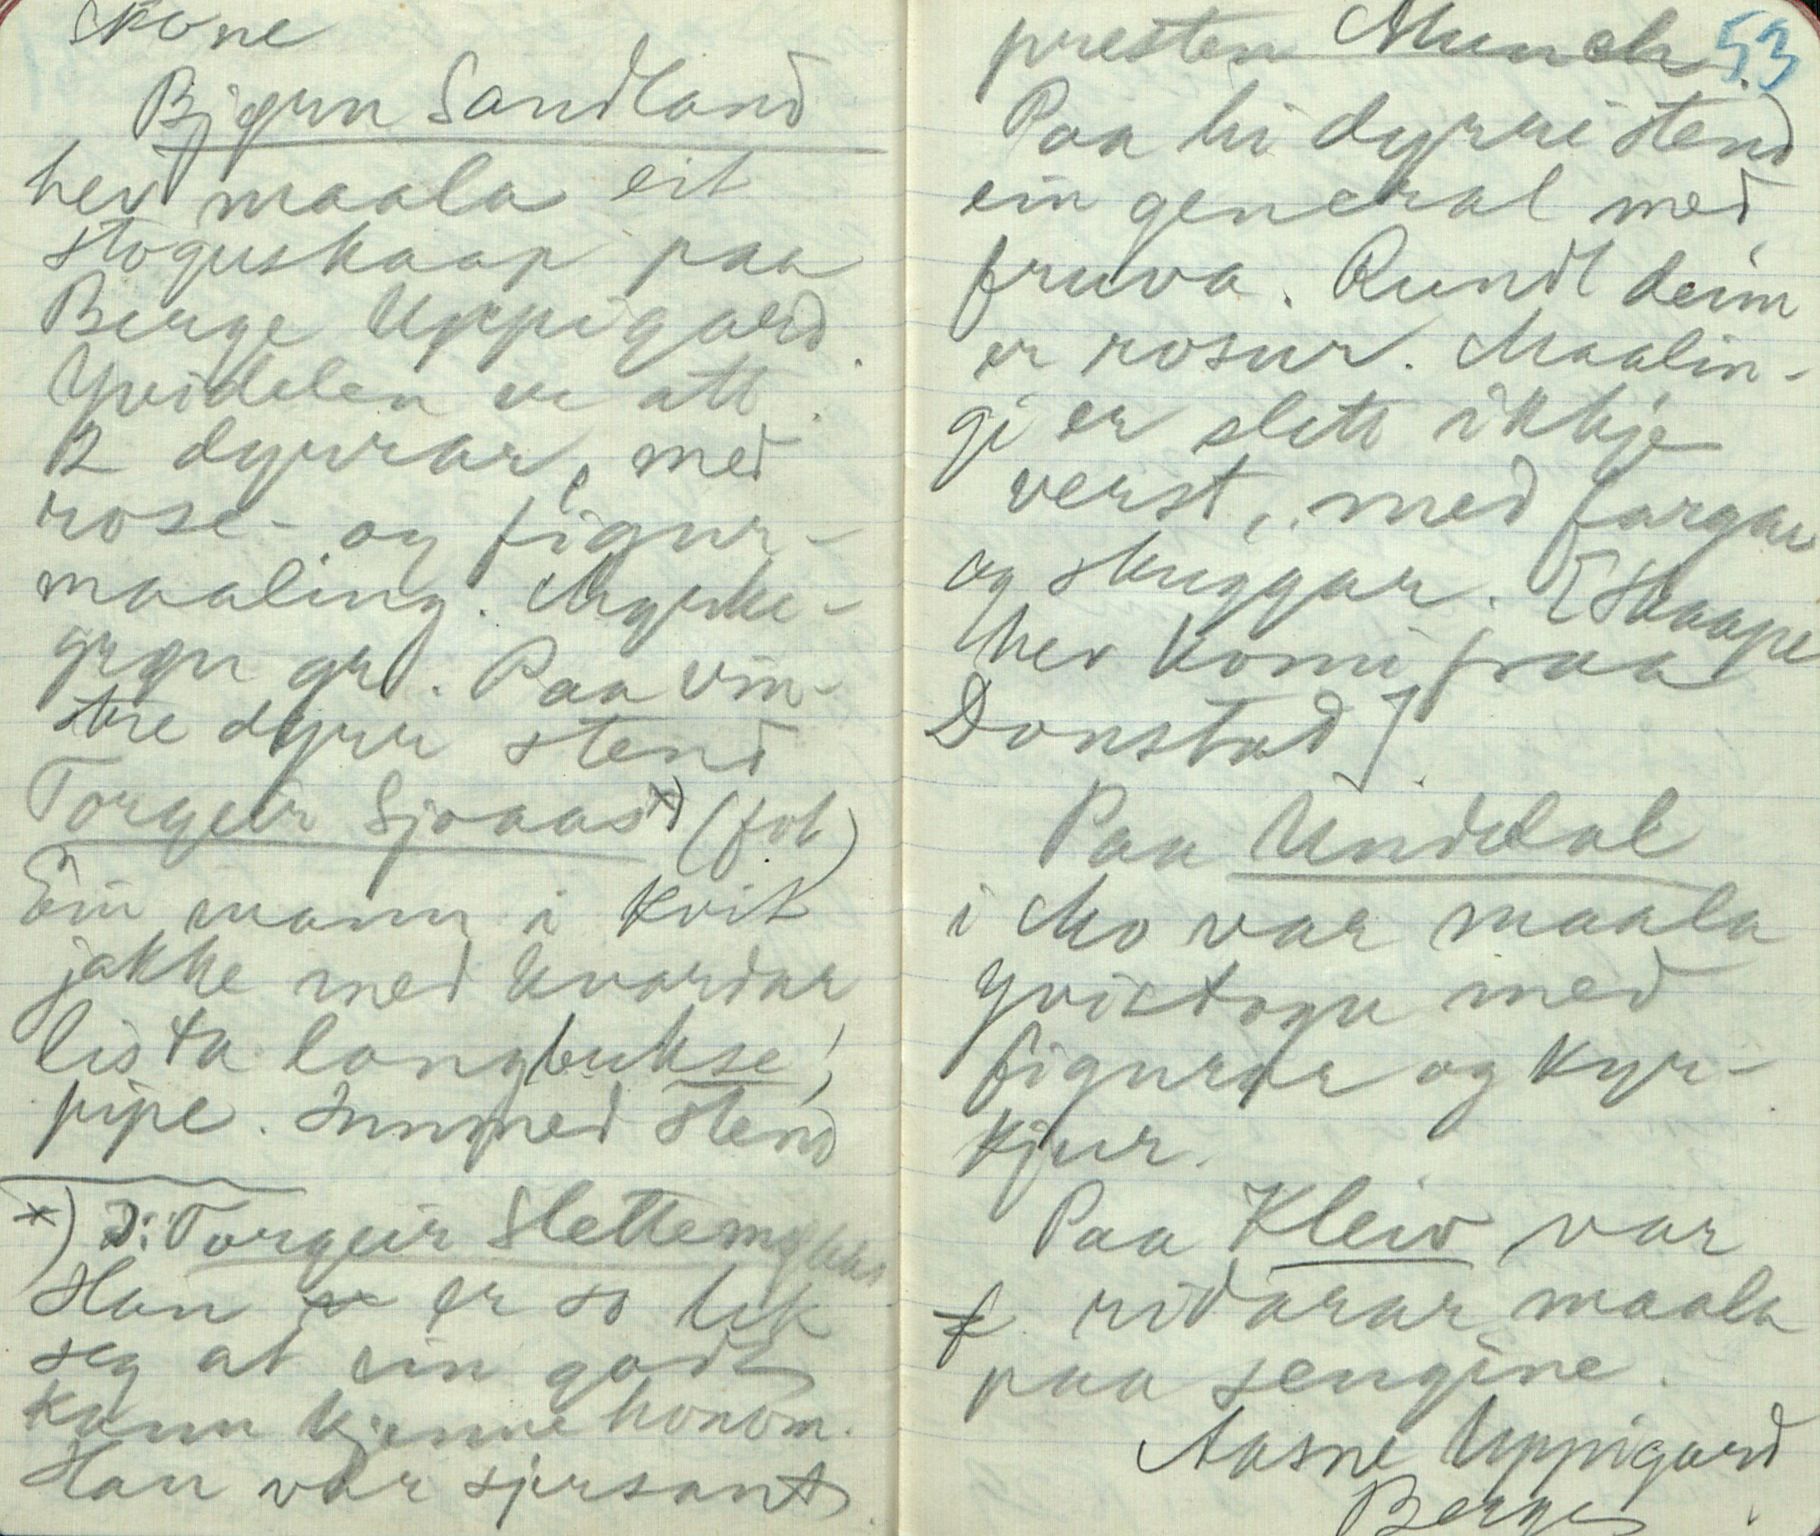 kone
Bjørn Sandland
hev maala eit
stoguskaap paa
Berge Uppigard.
Yvidelen er att.
2 dyrrar, med
rose- og figur-
maaling. Myrke-
grøn gr. Paa vin-
stre dyrr stend
Torgeir Sjoaas *) (fot)
Ein mann i kvit
jakke med kvardar
lista langbukse,
pipe. Innmed stend
*) ɔ: Torgeir Slettemyraas
Han er so lik
seg at ein godt
kann kjenne honom.
Han var sjersant
53
presten Munch.
Paa hi dyrri stend
ein general med
fruva. Rundt deim
er rosur. Maalin-
gi er slett ikkje
verst, med fargar
og skuggar. [Skaape
hev komi fraa
Donstad].
Paa Unddal
i Mo var maala
yvistogu med
figurar og kyr-
kjur.
Paa Kleiv var
ridarar maala
paa sengine.
Aasne Uppigard
Berge